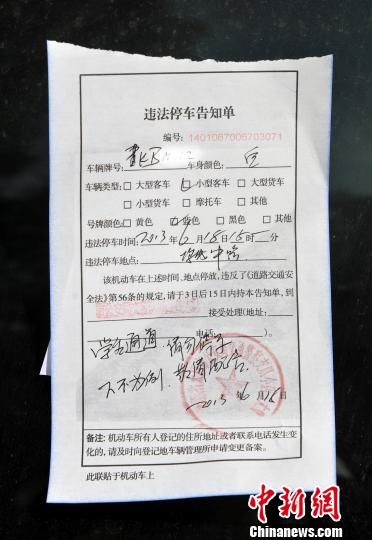 违法停车告知单
编号: 1401067006703071
车辆牌号: 车身颜色: 白
车辆类型: 大型客车 小型客车 大型货车
小型货车 摩托车 其他
号牌颜色: 黄色 蓝色 黑色 其他
违法停车时间: 2013年6月18日15时 分
违法停车地点: 中路
该机动车在上述时间、地点停放,违反了《道路交通安
全法》第56条的规定,请于3日后15日内持本告知单,到
接受处理(地址:
电话: )。
学生通道,请勿停车
下不为例,敬请配合
2013年6月18日
备注: 机动车所有人登记的住所地址或者联系电话发生变
化的,请及时向登记地车辆管理所申请变更备案。
此联贴于机动车上
中新网
Chinanews.com